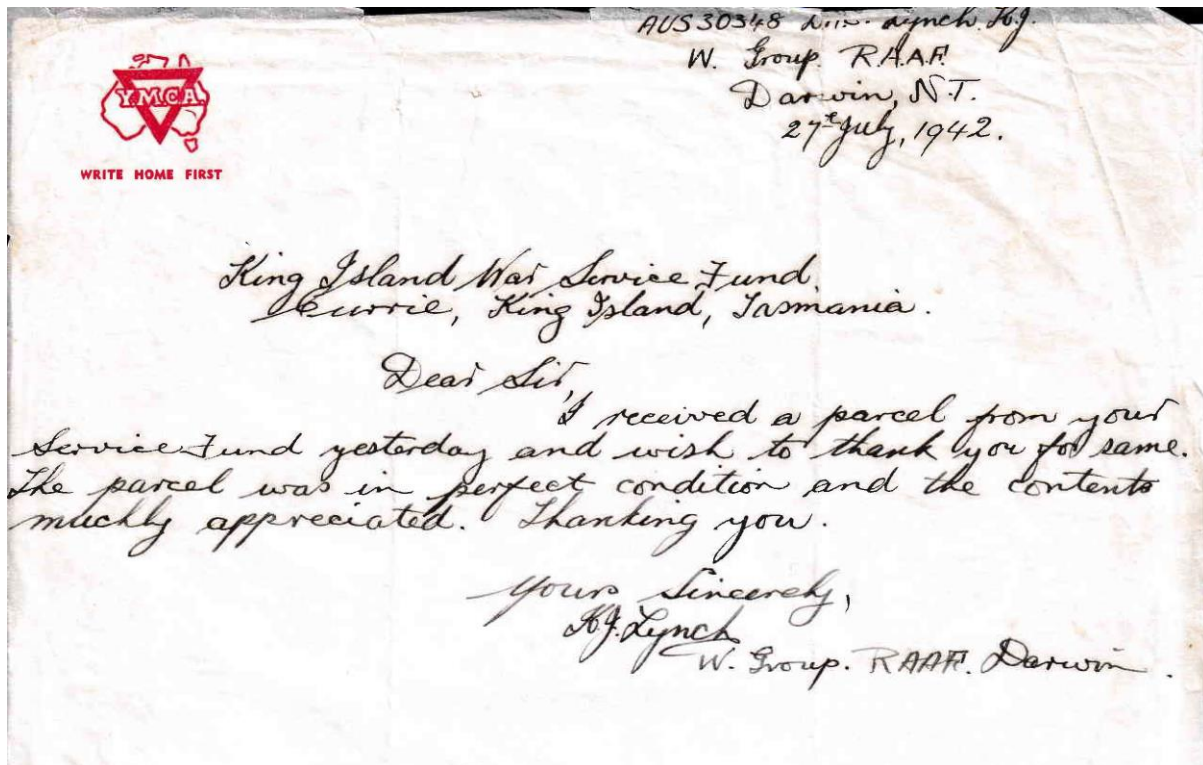 Y.M.C.A.
WRITE HOME FIRST
AUS 30348 Lynch. K.J.
W. Group. R.A.A.F.
Darwin, N.T.
27th July, 1942.
King Island War Service Fund.
Currie, King Island, Tasmania.
Dear Sir,
I received a parcel from your
Service Fund yesterday and wish to thank you for same.
The parcel was in perfect condition and the contents
muchly appreciated. Thanking you.
Yours Sincerely,
K.J. Lynch
W. Group. RAAF. Darwin.